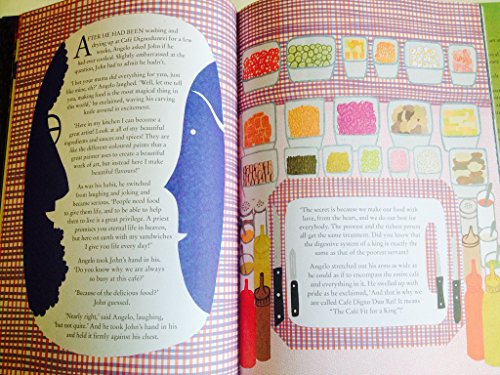 AFTER HE HAD BEEN washing and
drying up at Café Dignoduorei for a few
weeks, Angelo asked John if he
had ever cooked. Slightly embarrassed at the
question, John had to admit he hadn't.
'I bet your mama did everything for you, just
like mine, eh?' Angelo laughed. 'Well, let me tell
you, making food is the most magical thing in
this world,' he exclaimed, waving his carving
knife around in excitement.
'Here in my kitchen I can become a
great artist! Look at all of my beautiful
ingredients and sauces and spices! They are
like the different coloured paints that a
great painter uses to create a beautiful
work of art, but instead here I make
beautiful flavours!'
As was his habit, he switched
from laughing and joking and
became serious. 'People need food
to give them life, and to be able to help
them to live is a great privilege. A priest
promises you eternal life in heaven,
but here on earth with my sandwiches
I give you life every day!'
Angelo took John's hand in his.
'Do you know why we are always
so busy at this café?'
'Because of the delicious food?'
John guessed.
'Nearly right,' said Angelo, laughing,
'but not quite.' And he took John's hand in his
and held it firmly against his chest.
'The secret is because we make our food with
love, from the heart, and we do our best for
everybody. The poorest and the richest person
all get the same treatment. Did you know that
the digestive system of a king is exactly the
same as that of the poorest servant?'
Angelo stretched out his arms as wide as
he could as if to encompass the entire café
and everything in it. He swelled up with
pride as he exclaimed, 'And that is why we
are called Café Digno Duo Rei! It means
"The Café Fit for a King"!'